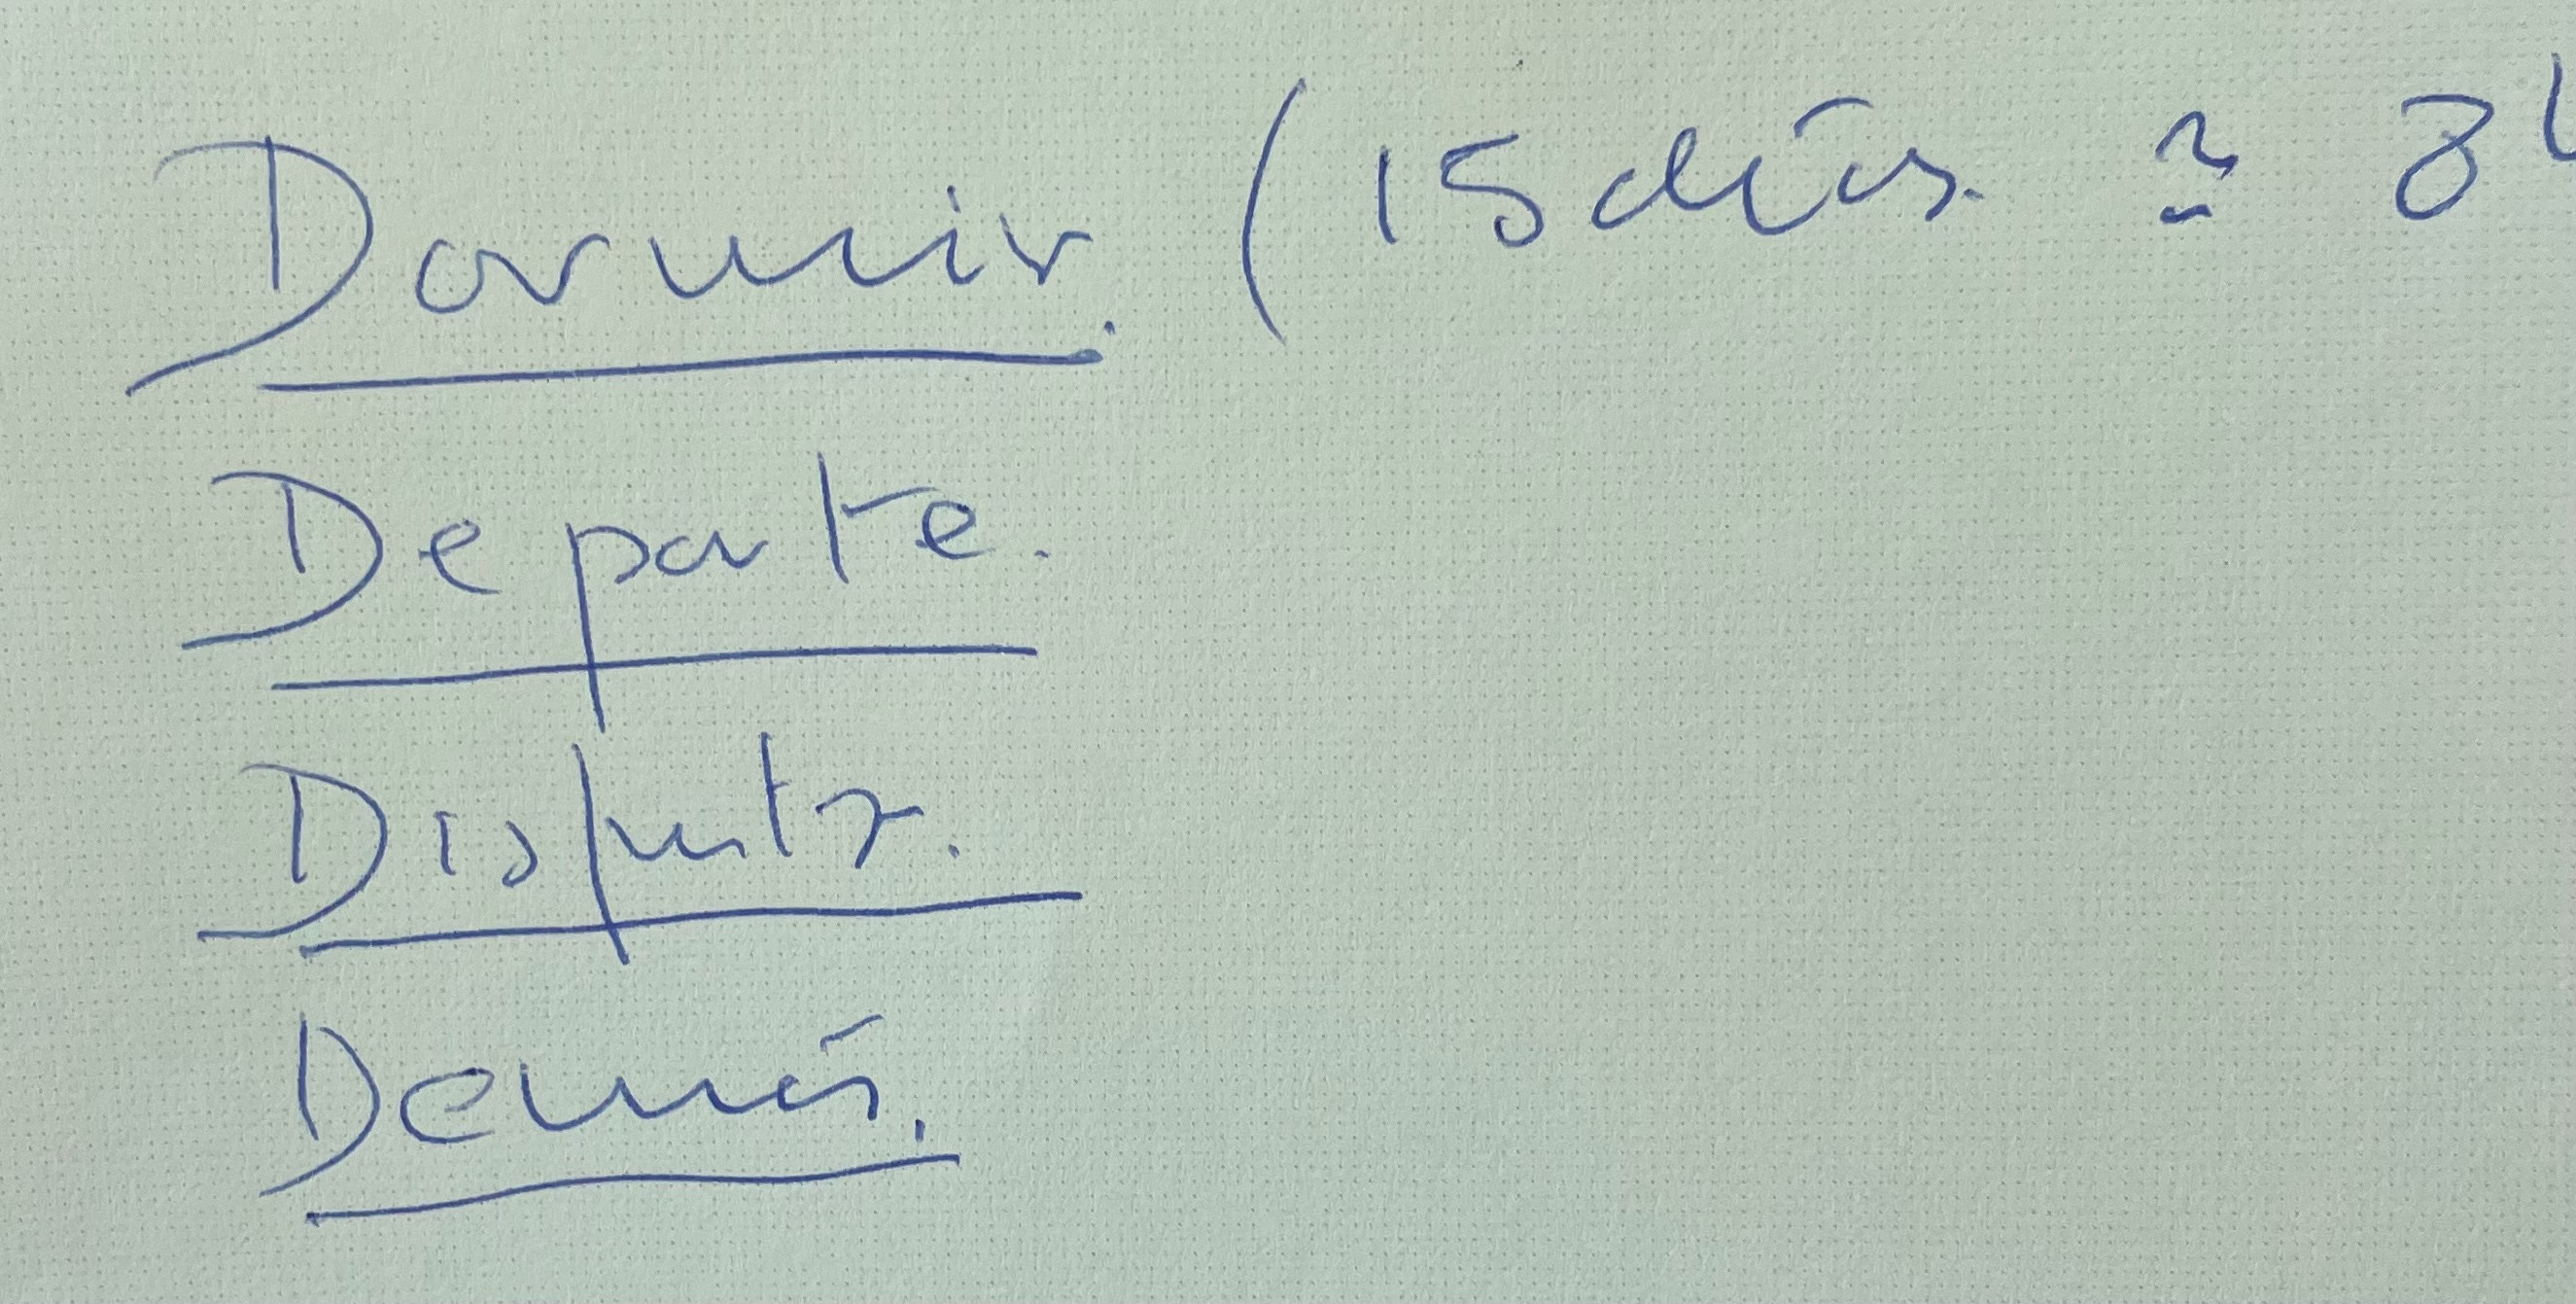 Dormir. (15 días ≅ 8h
Deporte.
Disfrutar.
Demás.